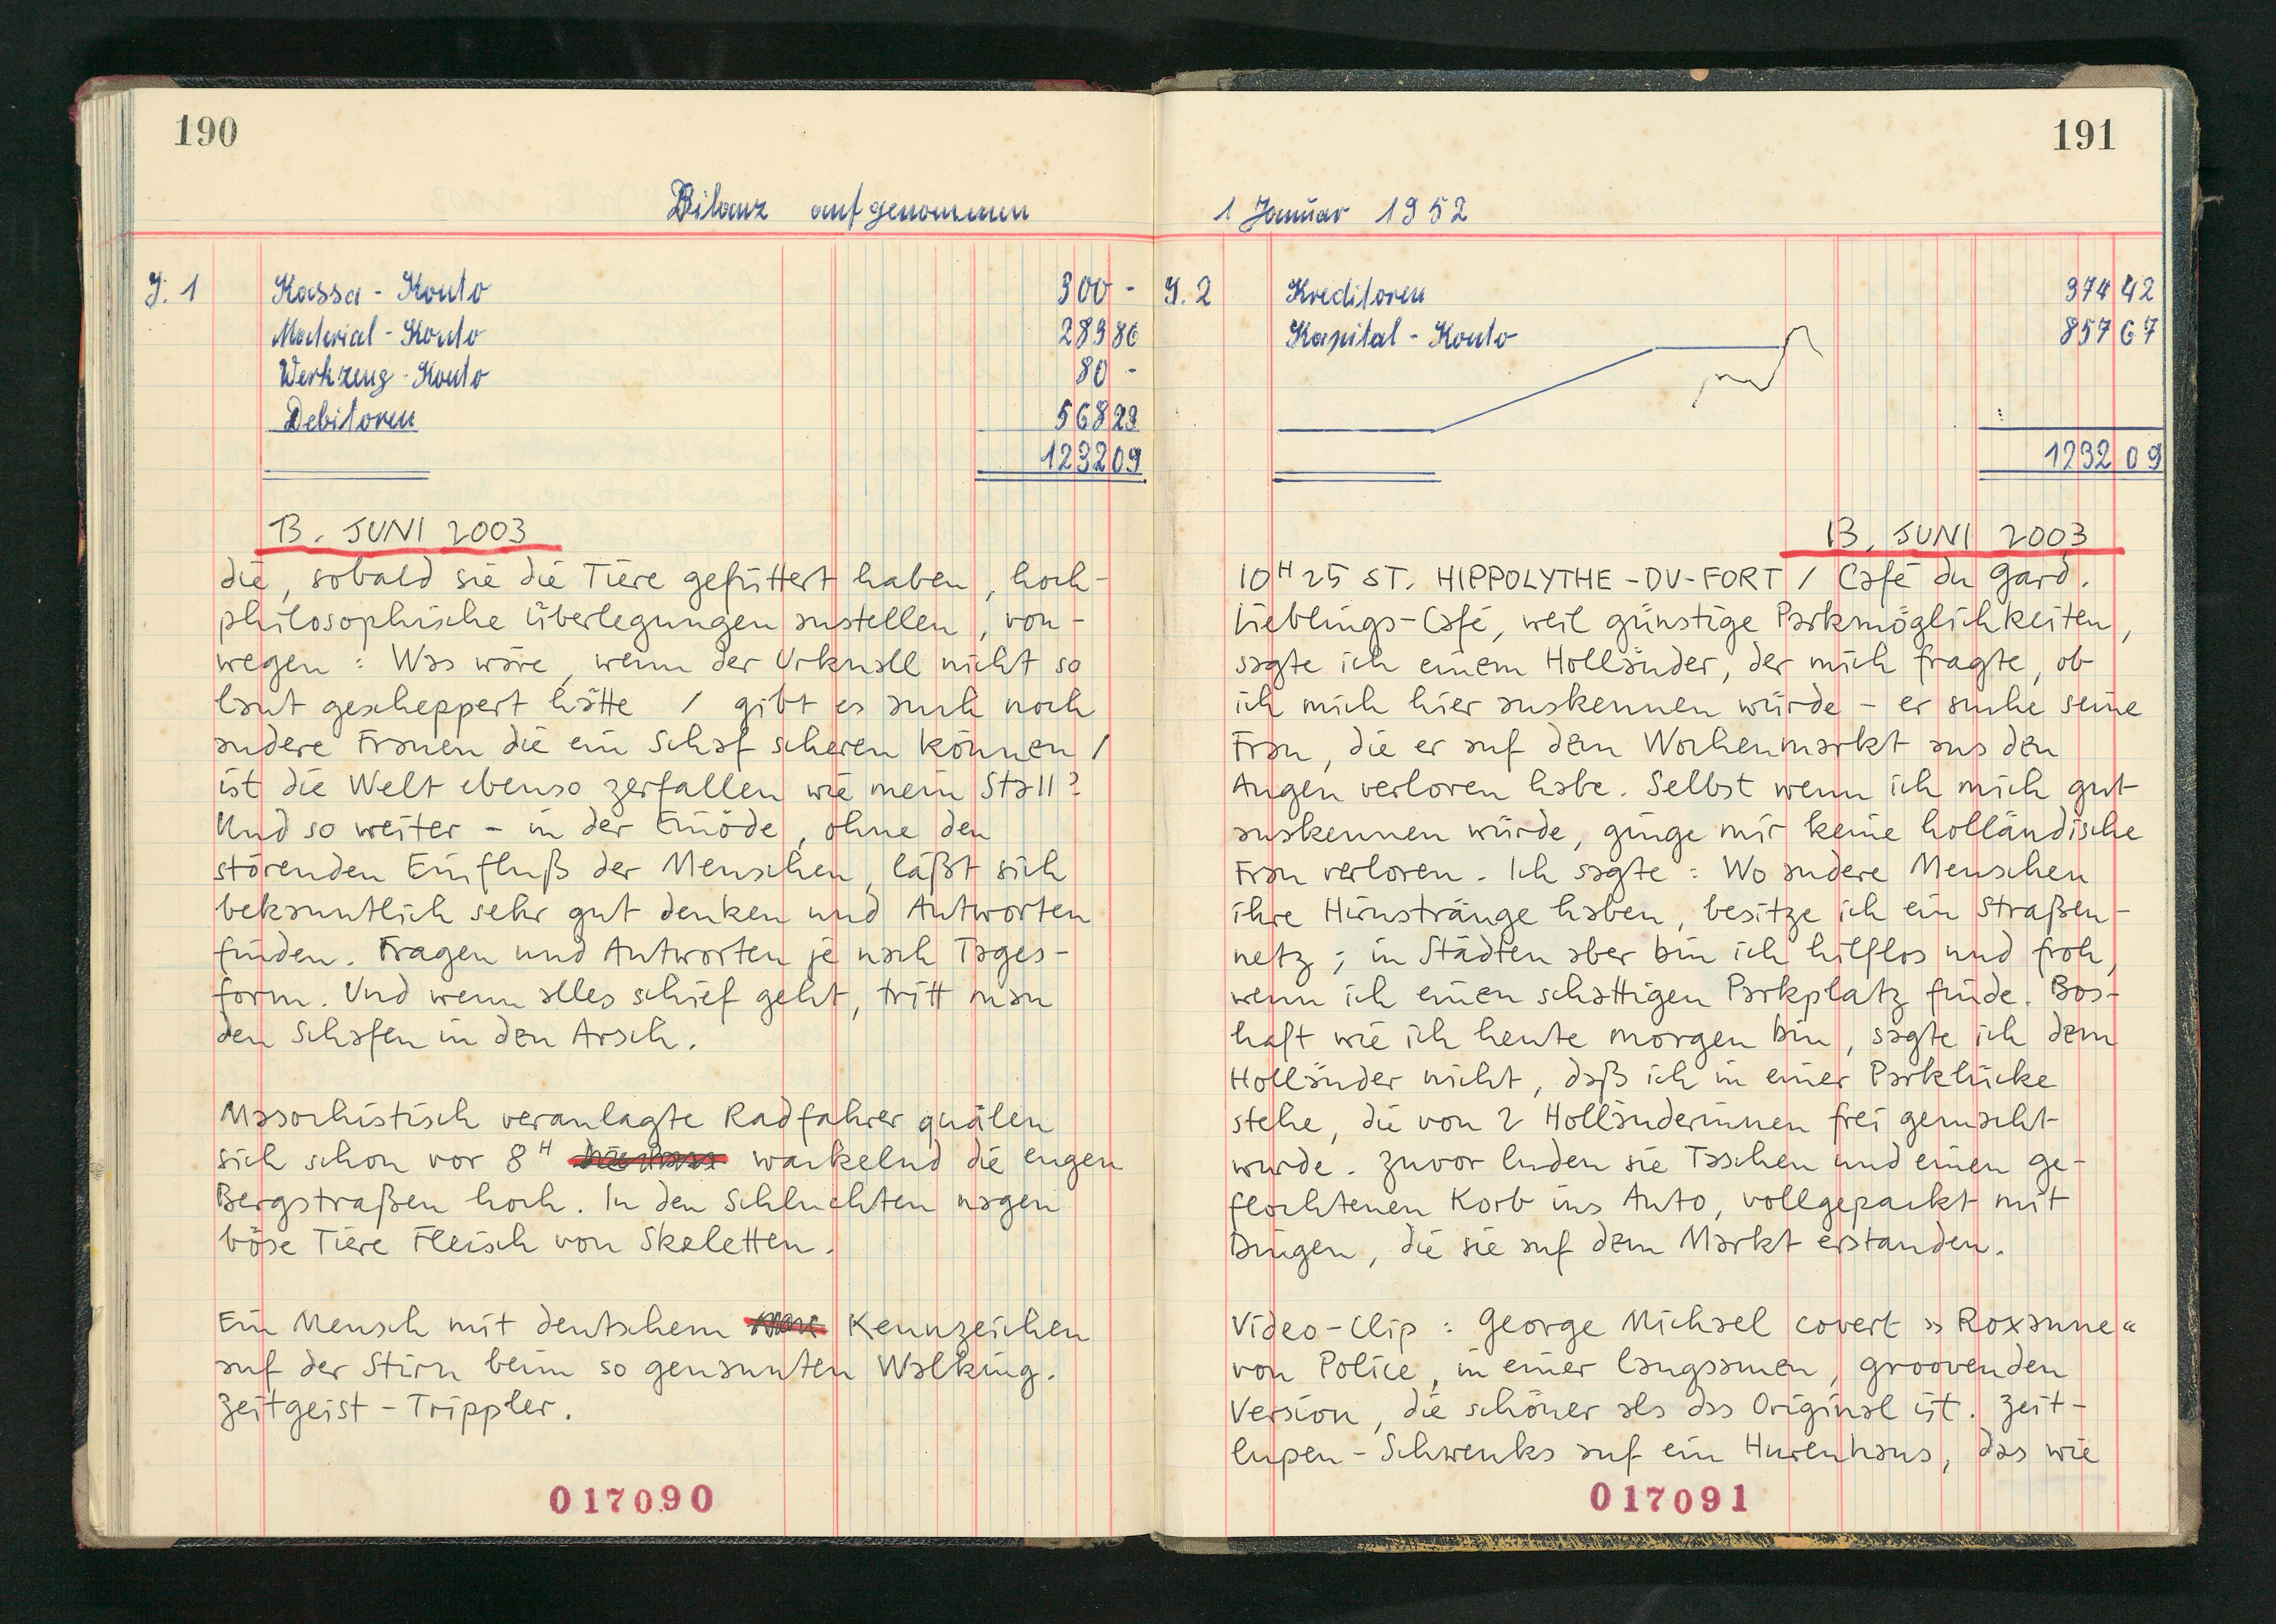 190
Bilanz aufgenommen
J. 1 Kassa - Konto 300 -
Material - Konto 283 86
Werkzeug - Konto 80 -
Debitoren 568 23
1232 09
13. JUNI 2003
die, sobald sie die Tiere gefüttert haben, hoch-
philosophische Überlegungen anstellen, von-
wegen: Was wäre, wenn der Urknall nicht so
laut gescheppert hätte / gibt es auch noch
andere Frauen die ein Schaf scheren können /
ist die Welt ebenso zerfallen wie mein Stall?
Und so weiter - in der Einöde, ohne den
störenden Einfluß der Menschen, läßt sich
bekanntlich sehr gut denken und Antworten
finden. Fragen und Antworten je nach Tages-
form. Und wenn alles schief geht, tritt man
den Schafen in den Arsch.
Masochistisch veranlagte Radfahrer quälen
sich schon vor 8H wackelnd die engen
Bergstraßen hoch. In den Schluchten nagen
böse Tiere Fleisch von Skeletten.
Ein Mensch mit deutschem Kennzeichen
auf der Stirn beim so genannten Walking.
Zeitgeist - Trippler.
017090
191
1 Januar 1952
J. 2 Kreditoren 374 42
Kapital - Konto 857 67
1232 09
13. JUNI 2003
10H25 ST. HIPPOLYTHE-DU-FORT / Café du Gard.
Lieblings-Café, weil günstige Parkmöglichkeiten,
sagte ich einem Holländer, der mich fragte, ob
ich mich hier auskennen würde - er suche seine
Frau, die er auf dem Wochenmarkt aus den
Augen verloren habe. Selbst wenn ich mich gut
auskennen würde, ginge mir keine holländische
Frau verloren. Ich sagte: Wo andere Menschen
ihre Hirnstränge haben, besitze ich ein Straßen-
netz; in Städten aber bin ich hilflos und froh,
wenn ich einen schattigen Parkplatz finde. Bos-
haft wie ich heute morgen bin, sagte ich dem
Holländer nicht, daß ich in einer Parklücke
stehe, die von 2 Holländerinnen frei gemacht
wurde. Zuvor luden sie Taschen und einen ge-
flochtenen Korb ins Auto, vollgepackt mit
Dingen, die sie auf dem Markt erstanden.
Video-Clip: George Michael covert »Roxanne«
von Police, in einer langsamen, groovenden
Version, die schöner als das Original ist. Zeit-
lupen-Schwenks auf ein Hurenhaus, das wie
017091